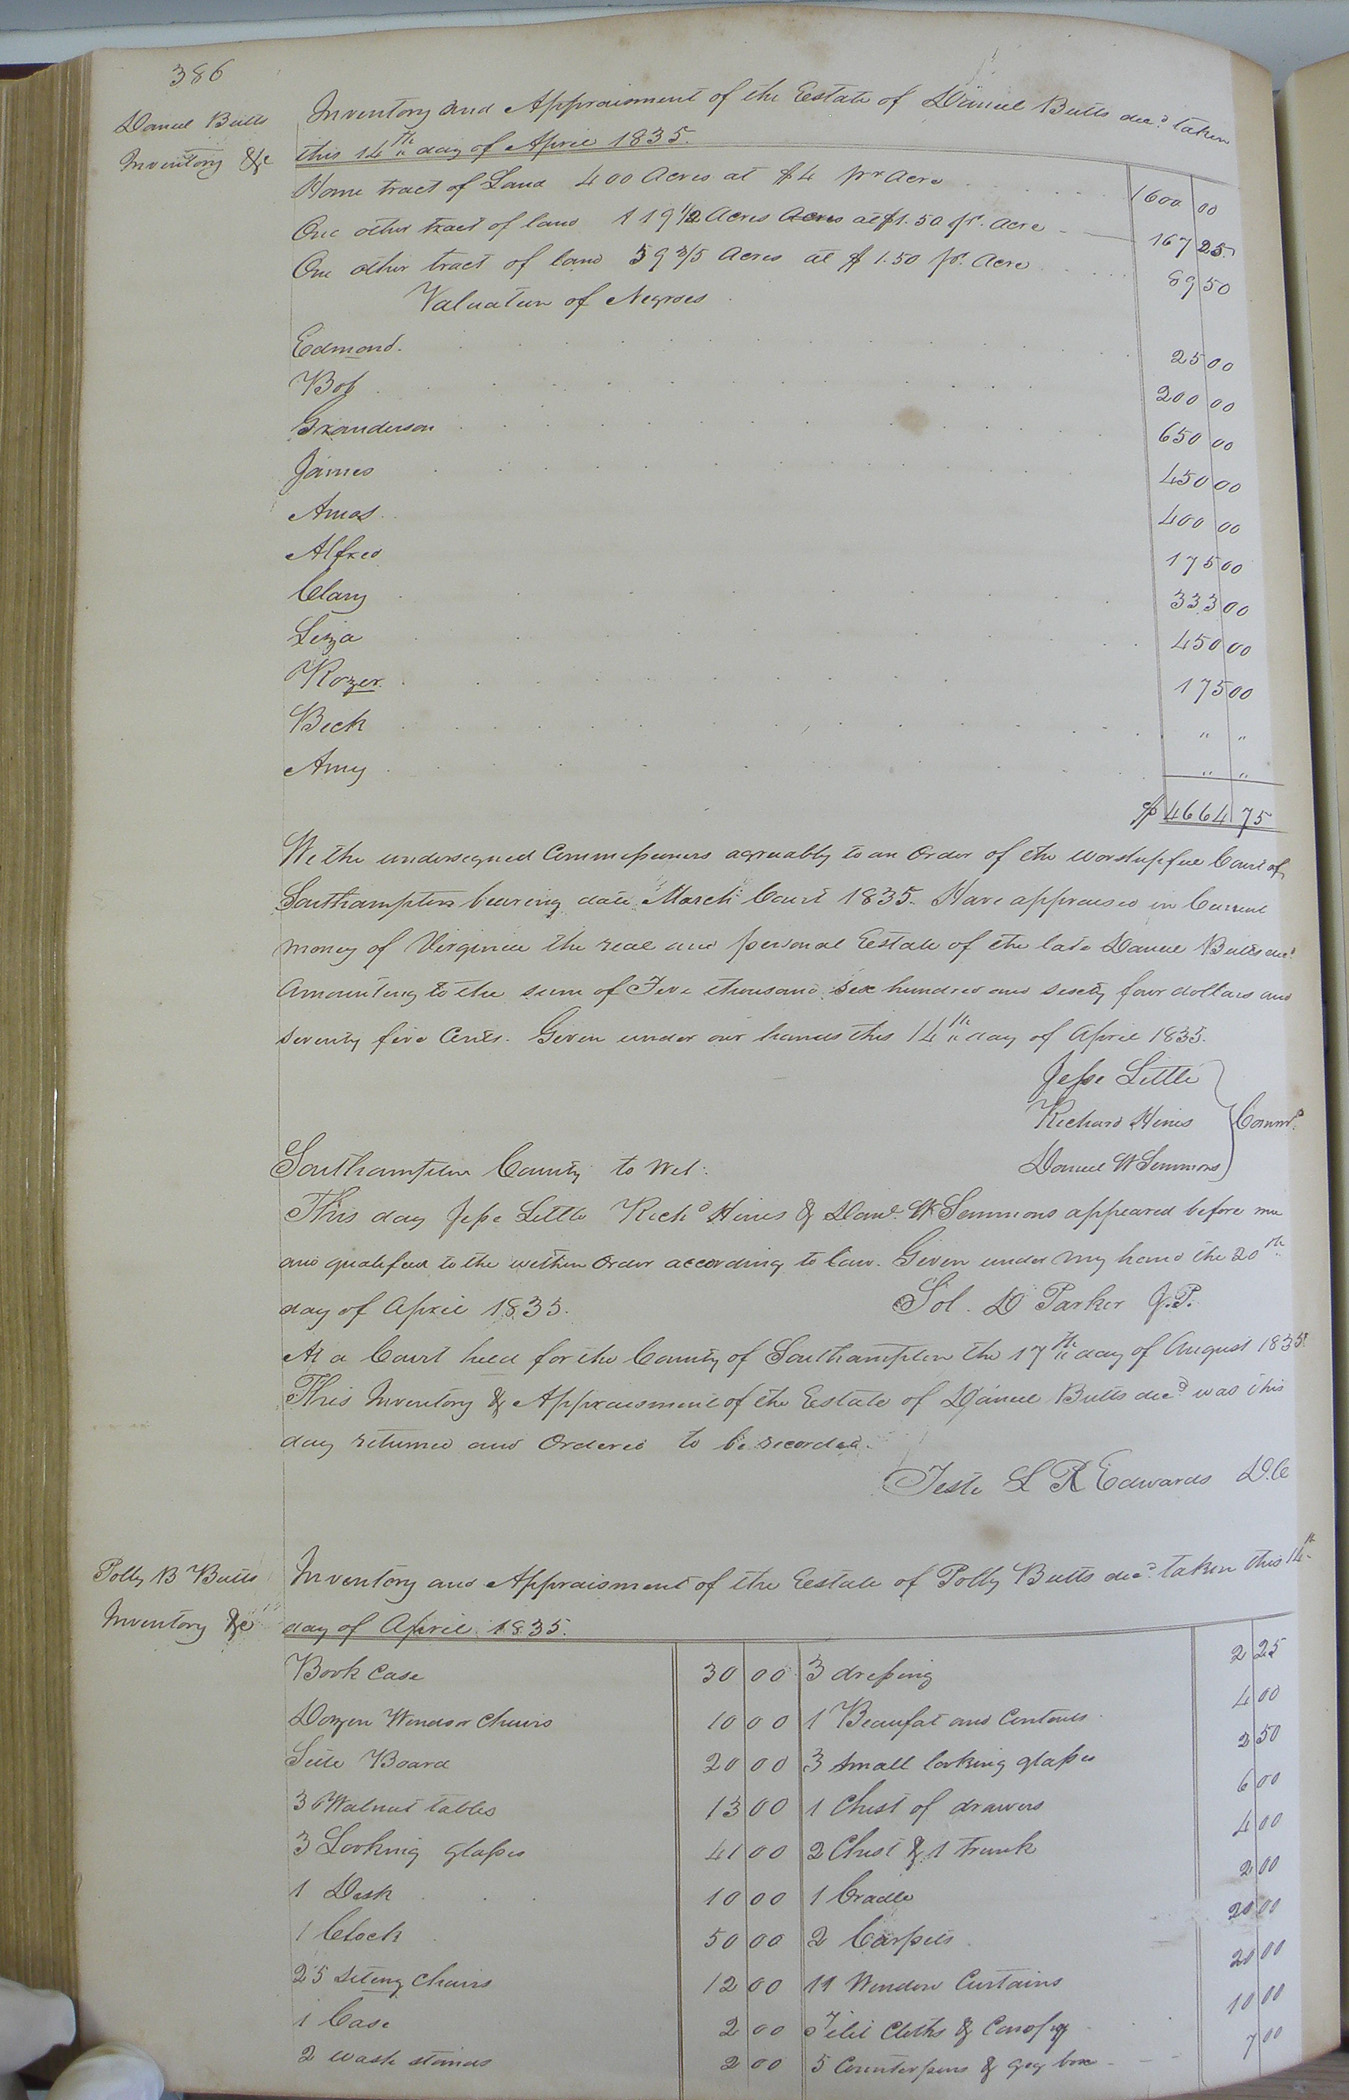 386
Daniel Butts
Inventory &c
Inventory and Appraisment of the Estate of Daniel Butts decd. taken
this 14th day of April 1835.
Home tract of Land 400 Acres at $4 pr Acre 1600 00
One other tract of land 119 1/2 Acres Acres at $1.50 pr. Acre 167 25
One other tract of land 59 3/5 Acres at $1.50 pr. Acre 89 50
Valuation of Negroes
Edmond. 25 00
Bob 200 00
Granderson 650 00
James 450 00
Amos 400 00
Alfred 175 00
Clary 333 00
Liza 450 00
Rozer. 175 00
Beck " "
Amy " "
$4664 75
We the undersigned Commissioners agreuably to an Order of the worshipful Court of
Southampton bearing date March Court 1835. Have appraised in Current
money of Virginia the real and personal Estate of the late Daniel Butts decd
Amounting to the sum of Five thousand six hundred and sixty four dollars and
seventy five Cents. Given under our hands this 14th day of April 1835.
Jesse Little
Richard Hines Commrs.
Daniel W Simmons
Southampton County to Wit:
This day Jesse Little Richd Hines & Danl. W Simmons appeared before me
and qualified to the within Order according to law. Given under my hand the 20th
day of April 1835. Sol. D Parker J.P.
At a Court held for the County of Southampton the 17th day of August 1835.
This Inventory & Appraisment of the Estate of Daniel Butts decd was this
day returned and Ordered to be recorded.
Teste L R Edwards D.C
Polly B Butts
Inventory &c
Inventory and Appraisment of the Estate of Polly Butts decd. taken this 14th
day of April 1835.
Book Case 30 00 3 dressing 2 25
Dozen Windsor Chairs 10 00 1 Beaufat and Contents 4 00
Side Board 20 00 3 small looking glasses 2 50
3 Walnut tables 13 00 1 Chest of drawers 6 00
3 Looking glasses 41 00 2 Chest & 1 trunk 4 00
1 Desk 10 00 1 Cradle 2 00
1 Clock 50 00 2 Carpets 20 00
25 siting Chairs 12 00 11 Window Curtains 20 00
1 Case 2 00 Cloths & Canopy 10 00
2 wash stands 2 00 5 Counterpins & box 7 00